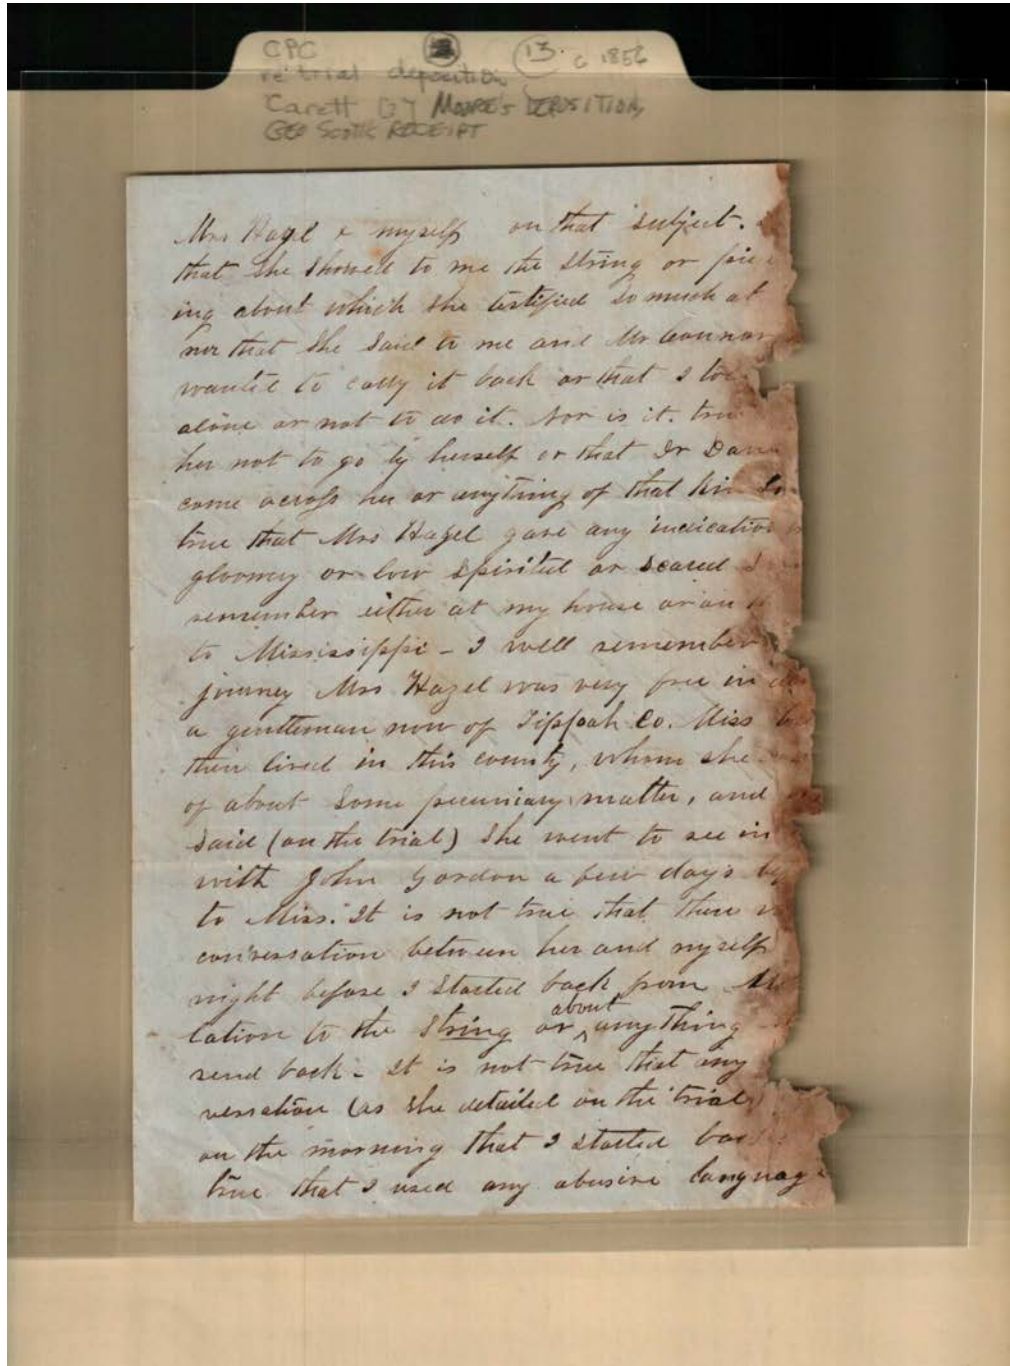 CPC 13. c 1856
re trial deposition
Carett By MOORE'S DEPOSITION,
GEO SCOTTS RECEIPT
Mrs Hazel & myself on that subject.
that she showed to me the string or pie
ing about which she testified so much at
nor that she said to me and Mr Connor
wanted to carry it back or that I to
alone or not to do it. Nor is it. true
her not to go by herself or that Dr Dav
come across her or anything of that kin
true that Mrs Hazel gave any indication
gloomy or low spirited or scared
remember either at my house or on
to Mississippi - I well remember
journey Mrs Hazel was very free in
a gentleman now of Tippah Co. Miss
then lived in this county, whom she
of about some pecuniary matter, and
said (on the trial) she went to see in
with John Gordon a few days be
to Miss. It is not true that there w
conversation between her and myself
night before I started back from
lation to the string or about anything
send back - It is not true that any
versation (as she detailed on the trial)
on the morning that I started bac
true that I used any abusive language